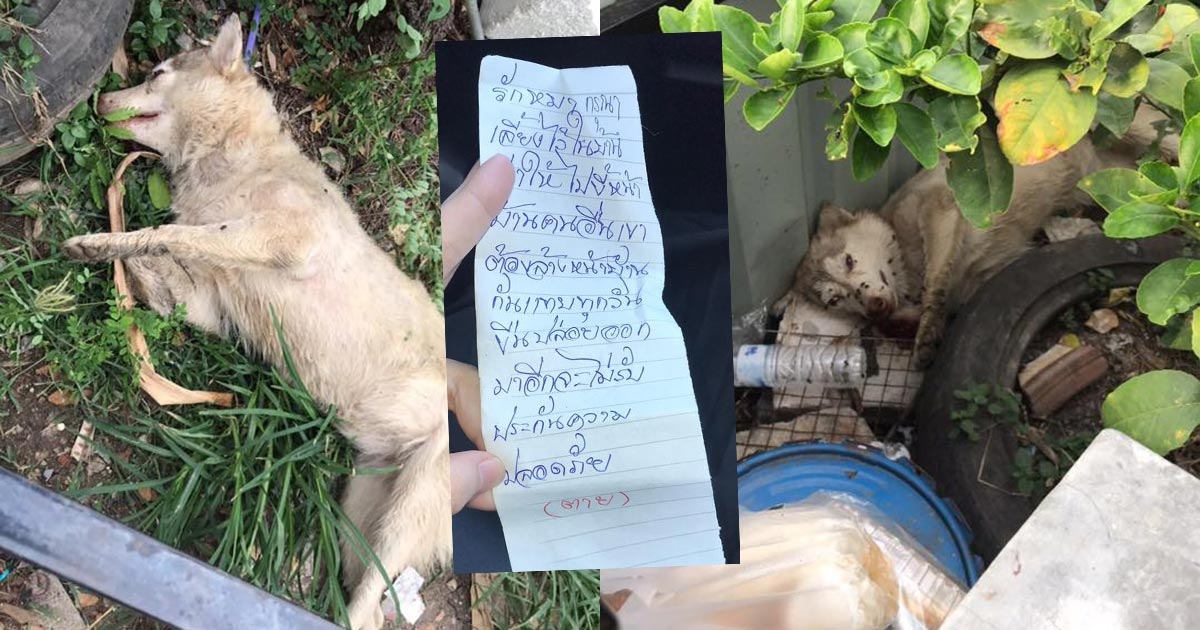 รักหมา กรุณา
เลี้ยงไว้ในบ้าน
อย่าให้ไปขี้หน้า
บ้านคนอื่น เขา
ต้องล้างหน้าบ้าน
กันแทบทุกวัน
ขืนปล่อยออก
มาอีกจะไม่รับ
ประกันความ
ปลอดภัย
(ตาย)